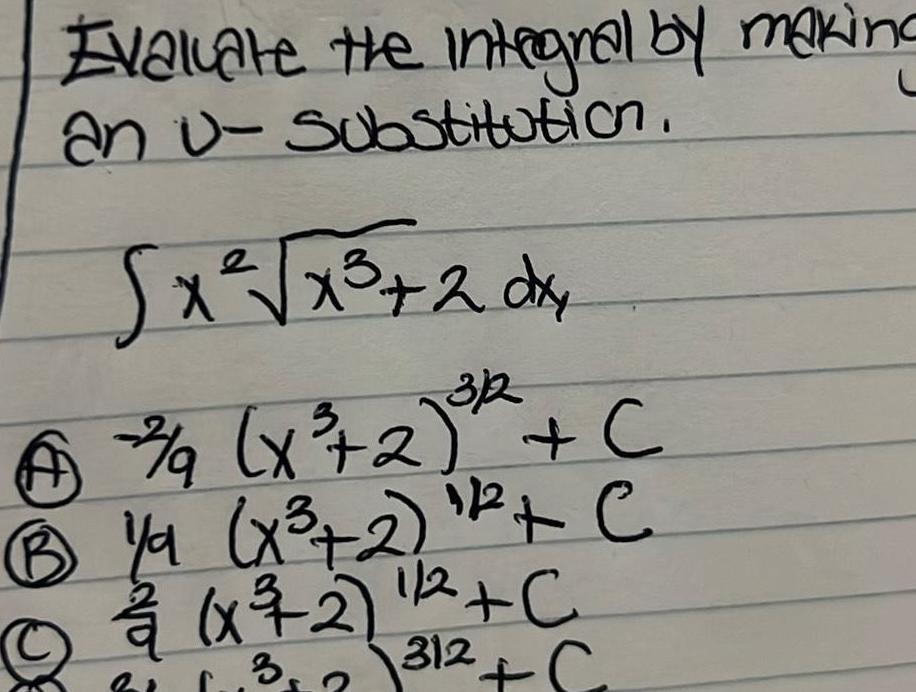 Evaluate the integral by making
an u- substitution.
∫ x²√x³+2 dx,
A -2/9 (x³+2)^3/2 + C
B 1/9 (x³+2)^1/2 + C
C 2/9 (x³+2)^1/2 + C
(x³+2)^3/2 + C